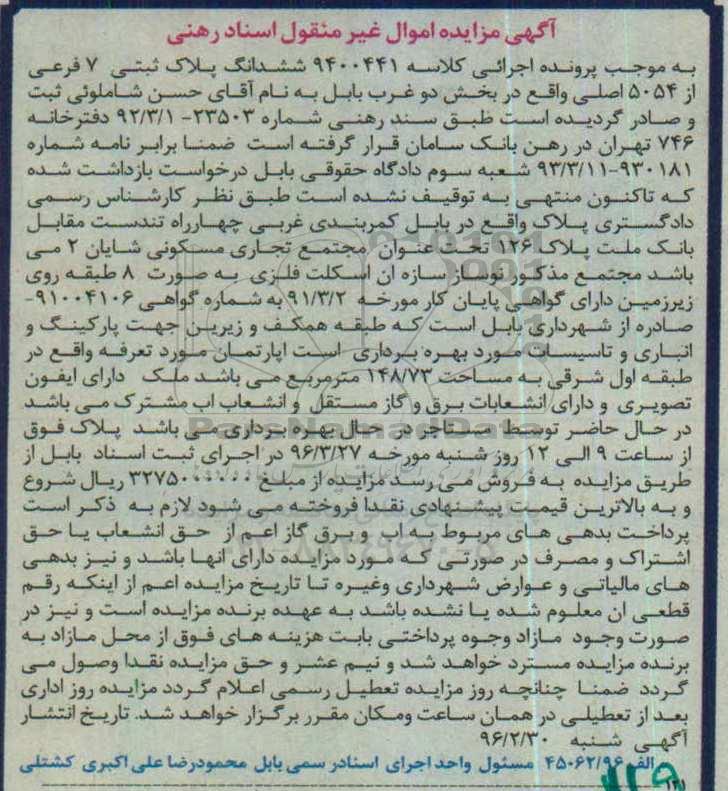 آگهی مزایده اموال غیر منقول اسناد رهنی
به موجب پرونده اجرائی کلاسه ۹۴۰۰۴۴۱ ششدانگ پلاک ثبتی ۷ فرعی
از ۵۰۵۴ اصلی واقع در بخش دو غرب بابل به نام آقای حسن شاملوئی ثبت
و صادر گردیده است طبق سند رهنی شماره ۲۳۵۰۳- ۹۲/۳/۱ دفترخانه
۷۴۶ تهران در رهن بانک سامان قرار گرفته است ضمنا برابر نامه شماره
۹۳۰۱۸۱-۹۳/۳/۱۱ شعبه سوم دادگاه حقوقی بابل درخواست بازداشت شده
که تاکنون منتهی به توقیف نشده است طبق نظر کارشناس رسمی
دادگستری پلاک واقع در بابل کمربندی غربی چهارراه تندست مقابل
بانک ملت پلاک ۱۲۶۱ تحت عنوان مجتمع تجاری مسکونی شایان ۲ می
باشد مجتمع مذکور نوساز سازه ان اسکلت فلزی به صورت ۸ طبقه روی
زیرزمین دارای گواهی پایان کار مورخه ۹۱/۳/۲ به شماره گواهی ۹۱۰۰۴۱۰۶-
صادره از شهرداری بابل است که طبقه همکف و زیرین جهت پارکینگ و
انباری و تاسیسات مورد بهره برداری است اپارتمان مورد تعرفه واقع در
طبقه اول شرقی به مساحت ۱۴۸/۷۳ مترمربع می باشد ملک دارای ایفون
تصویری و دارای انشعابات برق و گاز مستقل و انشعاب اب مشترک می باشد
در حال حاضر توسط مستاجر در حال بهره برداری می باشد پلاک فوق
از ساعت ۹ الی ۱۲ روز شنبه مورخه ۹۶/۳/۲۷ در اجرای ثبت اسناد بابل از
طریق مزایده به فروش می رسد مزایده از مبلغ ۳۲۷۵۰۰۰۰۰۰ ریال شروع
و به بالاترین قیمت پیشنهادی نقدا فروخته می شود لازم به ذکر است
پرداخت بدهی های مربوط به اب و برق گاز اعم از حق انشعاب یا حق
اشتراک و مصرف در صورتی که مورد مزایده دارای انها باشد و نیز بدهی
های مالیاتی و عوارض شهرداری وغیره تا تاریخ مزایده اعم از اینکه رقم
قطعی ان معلوم شده یا نشده باشد به عهده برنده مزایده است و نیز در
صورت وجود مازاد وجوه پرداختی بابت هزینه های فوق از محل مازاد به
برنده مزایده مسترد خواهد شد و نیم عشر و حق مزایده نقدا وصول می
گردد ضمنا چنانچه روز مزایده تعطیل رسمی اعلام گردد مزایده روز اداری
بعد از تعطیلی در همان ساعت ومکان مقرر برگزار خواهد شد. تاریخ انتشار
آگهی شنبه ۹۶/۲/۳۰
الف ۴۵۰۶۲/۹۶ مسئول واحد اجرای اسنادرسمی بابل محمودرضا علی اکبری کشتلی
ParsNamadData